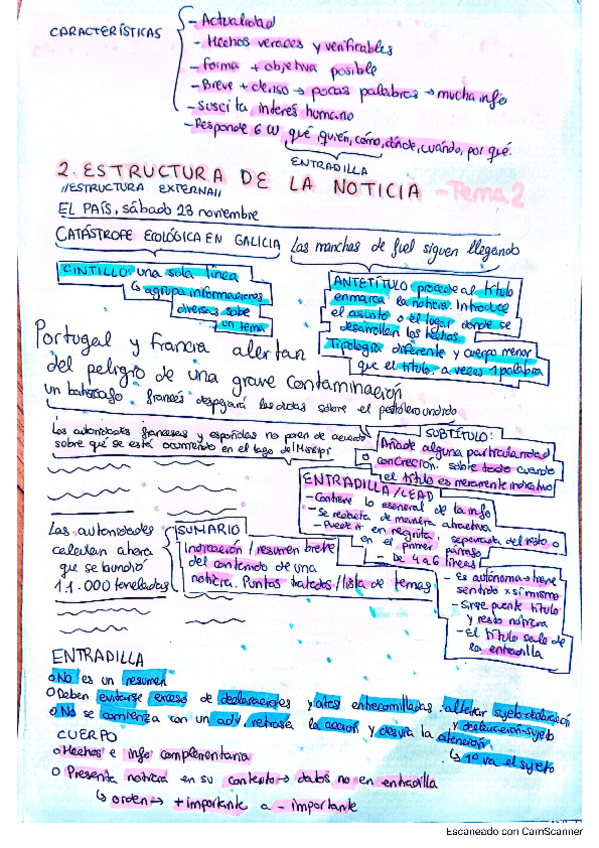 CARACTERÍSTICAS
- Actualidad
- Hechos veraces y verificables
- forma + objetiva posible
- Breve + denso → pocas palabras → mucha info
- Suscita interés humano
- Responde 6 W, qué, quién, cómo, dónde, cuándo, por qué.
ENTRADILLA
2. ESTRUCTURA DE LA NOTICIA - Tema 2
//ESTRUCTURA EXTERNA//
EL PAÍS, sábado 23 noviembre
CATÁSTROFE ECOLÓGICA EN GALICIA
Las manchas de fuel siguen llegando
CINTILLO: una sola línea
↳ agrupa informaciones
diversas sobe
un tema
ANTETÍTULO: precede al título
enmarca la noticia. Introduce
el asunto o el lugar donde se
desarrollan los hechos.
Tipología diferente y cuerpo menor
que el título. a veces 1 palabra
Portugal y Francia alertan
del peligro de una grave contaminación
un batiscafo francés despejará las dudas sobre el petrolero hundido
Las autoridades francesas y españolas no ponen de acuerdo
sobre qué se está ocurriendo en el
SUBTÍTULO:
Añade alguna particularidad
o concreción. sobre todo cuando
el título es meramente indicativo
ENTRADILLA/LEAD
- Contiene lo esencial de la info
- Se redacta de manera atractiva
- Puede ir en negrita, separada del resto o
en el primer párrafo
- De 4 a 6 líneas
- Es autónoma → tiene
sentido x sí mismo
- Sirve puente título
y resto noticia
- El título sale de
la entradilla
Las autoridades
calculan ahora
que se hundió
11.000 toneladas
SUMARIO
Indicación / resumen breve
del contenido de una
noticia. Puntos tratados/lista de temas
ENTRADILLA
o No es un resumen
o Deben evitarse exceso de declaraciones y citas entrecomilladas. alternar sujeto-declaración
y declaración-sujeto
o No se comienza con un adv, retrasa la acción y desvía la atención
↳ 1º va el sujeto
CUERPO
o Hechos e info complementaria
o Presenta noticia en su contexto → datos no en entradilla
↳ orden → + importante a - importante
Escaneado con CamScanner